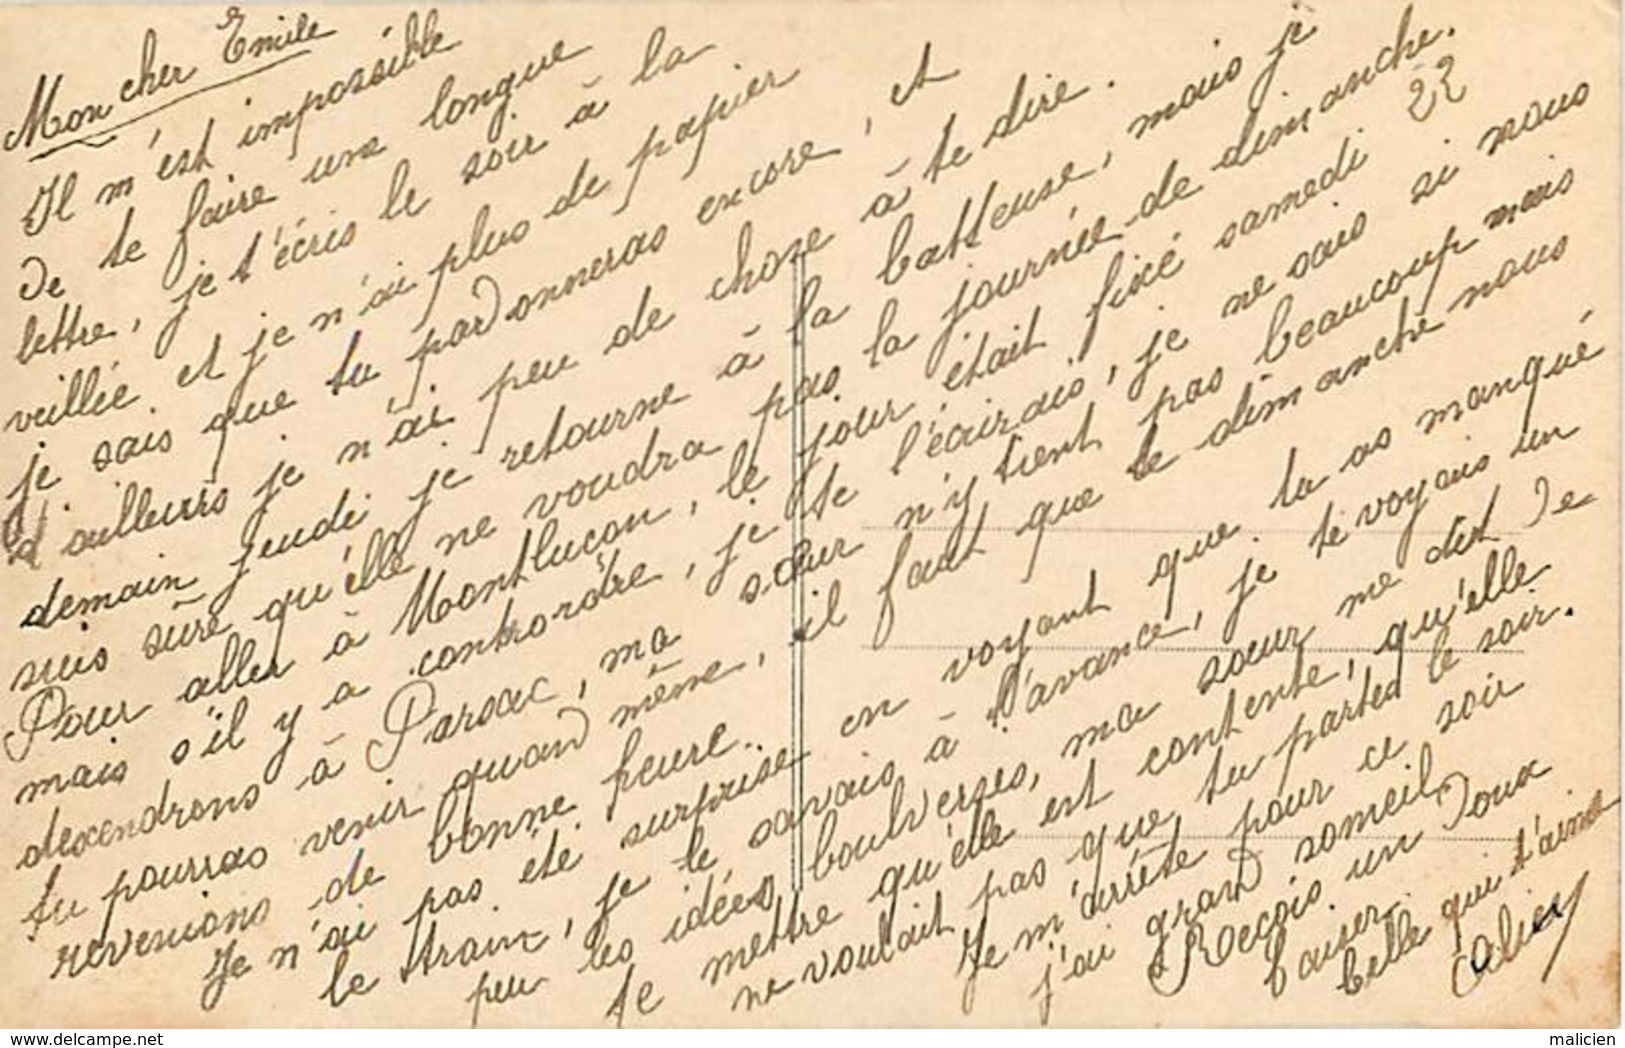 Mon cher Emile
Il m'est impossible
de te faire une longue
lettre, je t'écris le soir à la
veillée et je n'ai plus de papier
je sais que tu pardonneras encore, et
d'ailleurs je n'ai peu de chose à te dire.
demain jeudi je retourne à la batteuse, mais je
suis sûre qu'elle ne voudra pas la journée de dimanche.
Pour aller à Montluçon, le jour était fixé samedi 22
mais s'il y a contrordre, je te l'écrirais, je ne sais si nous
dexendrons à Parsac, ma sœur n'y tient pas beaucoup mais
tu pourras venir quand même, il faut que le dimanche nous
revenions de bonne heure.
Je n'ai pas été surprise en voyant que tu as manqué
le train, je le savais à l'avance, je te voyais un
peu les idées boulversés, ma sœur me dit de
te mettre qu'elle est contente, qu'elle
ne voulait pas que tu partes le soir.
Je m'arrête pour ce soir
j'ai grand someil
Reçois un doux
baiser
belle qui t'aime
malicien
delcampe.net